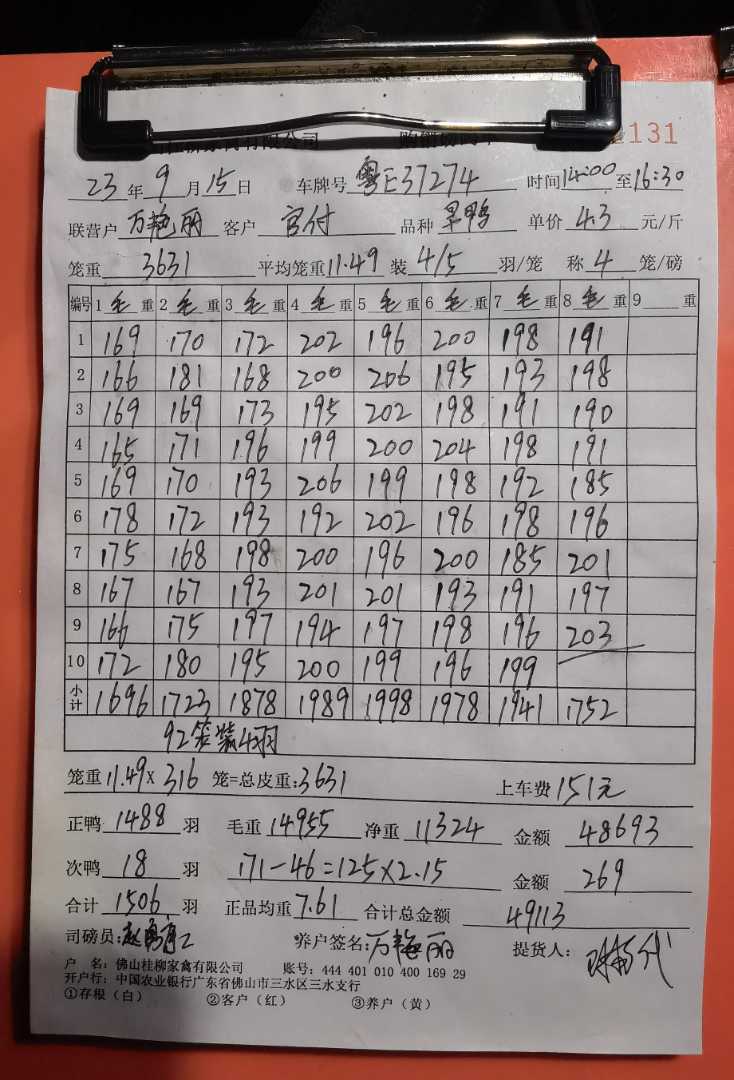 家禽有限公司
1131
23年9月15日 车牌号 粤E37274 时间14:00至16:30
联营户 万艳丽 客户 官付 品种 旱鸭 单价 4.3 元/斤
笼重 3631 平均笼重11.49 装 4/5 羽/笼 称 4 笼/磅
编号 1 毛 重 2 毛 重 3 毛 重 4 毛 重 5 毛 重 6 毛 重 7 毛 重 8 毛 重 9 重
1 169 170 172 202 196 200 198 191
2 166 181 168 200 206 195 193 198
3 169 169 173 195 202 198 191 190
4 165 171 196 199 200 204 198 191
5 169 170 193 206 199 198 192 185
6 178 172 193 192 202 196 198 196
7 175 168 198 200 196 200 185 201
8 167 167 193 201 201 193 191 197
9 166 175 197 194 197 198 196 203
10 172 180 195 200 199 196 199
小计 1696 1723 1878 1989 1998 1978 1941 1752
92笼装4羽
笼重 11.49 x 316 笼=总皮重:3631 上车费 151元
正鸭 1488 羽 毛重 14955 净重 11324 金额 48693
次鸭 18 羽 171-46=125×2.15 金额 269
合计 1506 羽 正品均重 7.61 合计总金额 49113
司磅员: 养户签名:万艳丽 提货人:
户 名:佛山桂柳家禽有限公司 账号:444 401 010 400 169 29
开户行:中国农业银行广东省佛山市三水区三水支行
①存根(白) ②客户(红) ③养户(黄)